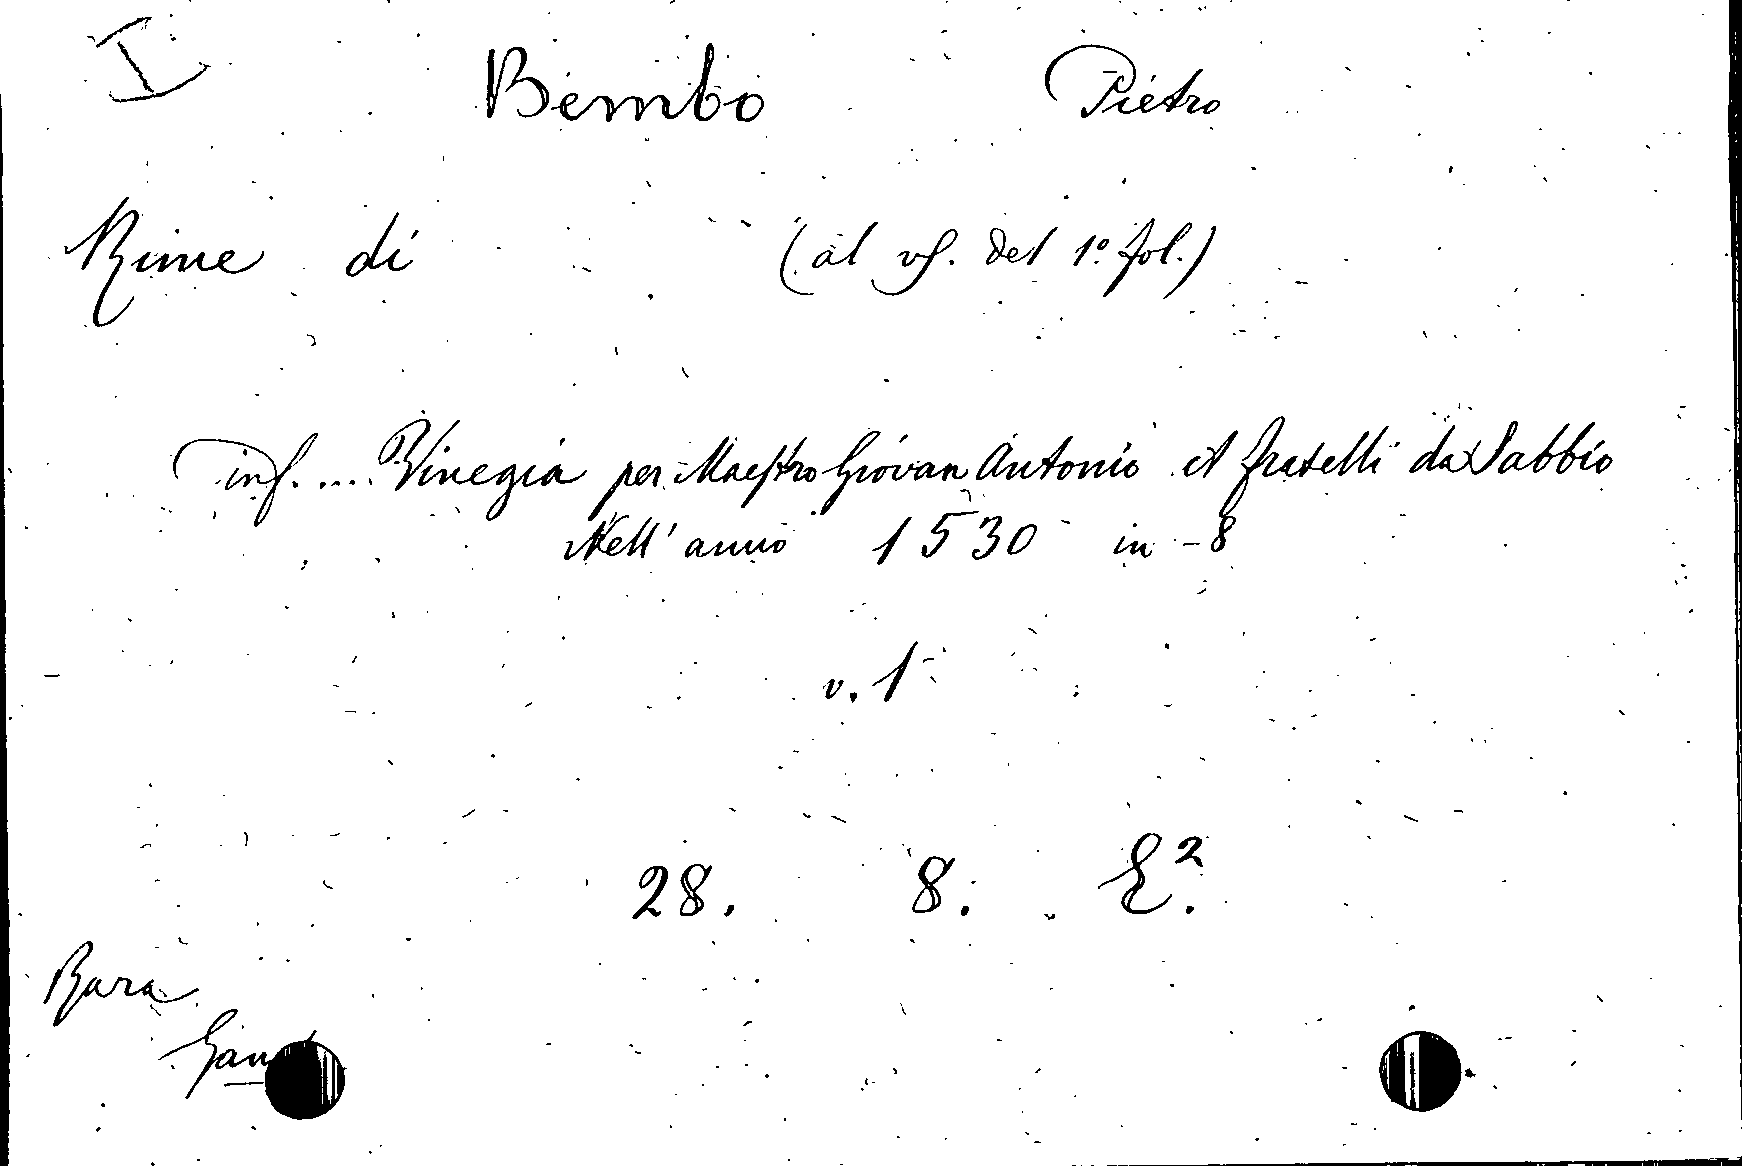 I
Bembo Pietro
Rime di (al vſ. del 1º fol.)
inf. .... Vinegia per Maeſtro Giovan Antonio et fratelli da Sabbio
Nell' anno 1530 in-8
v. 1
28. 8. E².
Rara